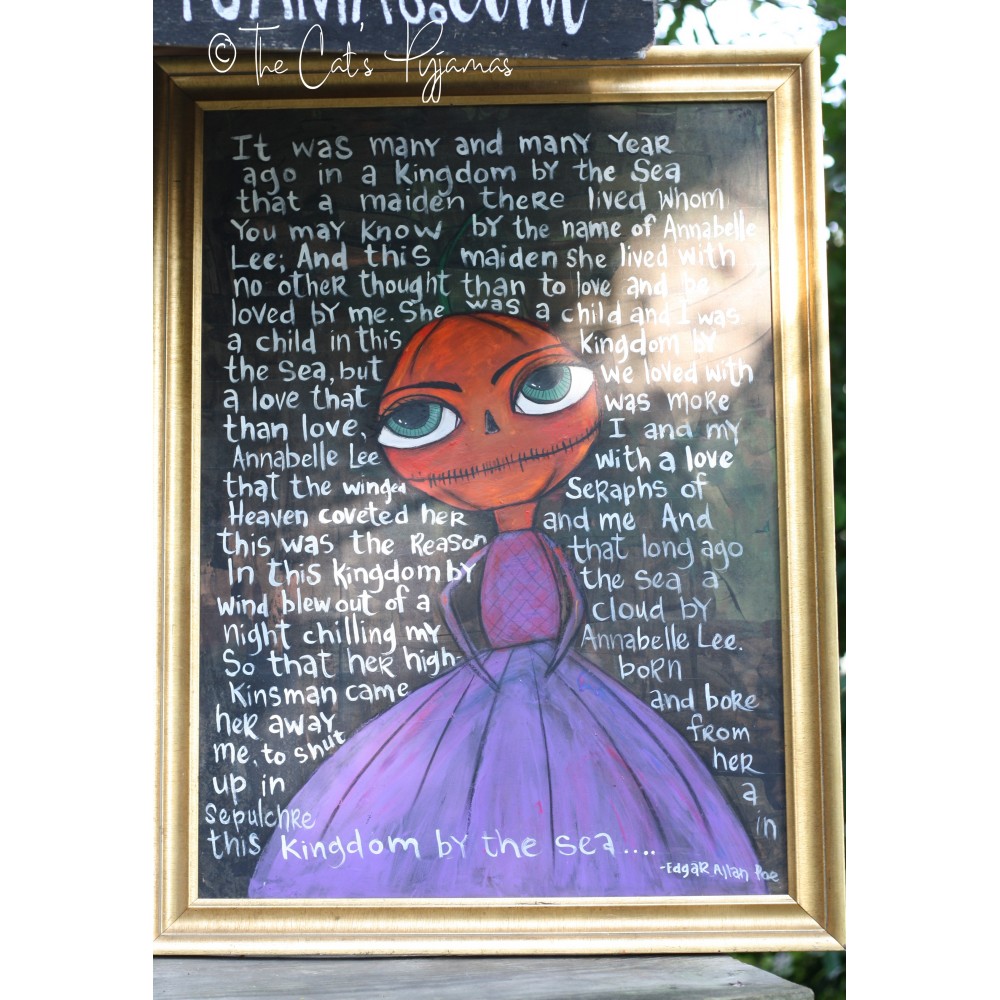 JAMAS.com
© The Cat's Pyjamas
It was many and many Year
ago in a Kingdom by the Sea
that a maiden there lived whom
You may know by the name of Annabelle
Lee; And this maiden she lived with
no other thought than to love and be
loved by me. She was a child and I was
a child in this Kingdom by
the Sea, but we loved with
a love that was more
than love, I and my
Annabelle Lee with a love
that the winged Seraphs of
Heaven coveted her and me And
this was the Reason that long ago
In this Kingdom by the Sea a
wind blew out of a cloud by
night chilling my Annabelle Lee.
So that her high- born
Kinsman came and bore
her away from
me, to shut her
up in a
Sepulchre in
this Kingdom by the Sea....
-Edgar Allan Poe